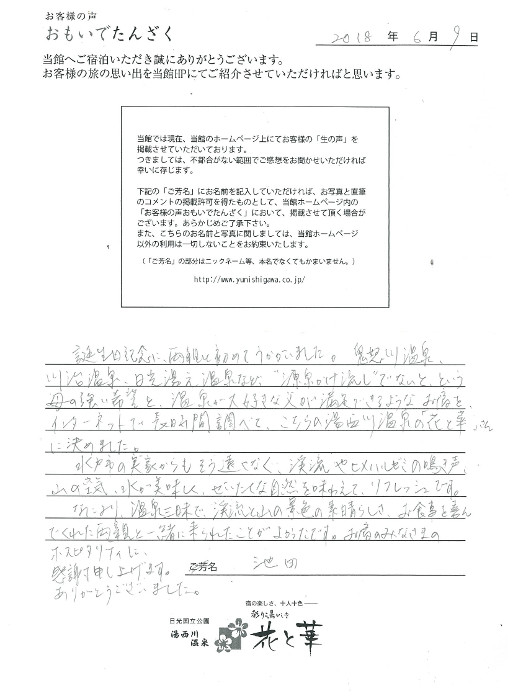 お客様の声
おもいでたんざく
2018 年 6 月 9 日
当館へご宿泊いただき誠にありがとうございます。
お客様の旅の思い出を当館HPにてご紹介させていただければと思います。
当館では現在、当館のホームページ上にてお客様の「生の声」を
掲載させていただいております。
つきましては、不都合がない範囲でご感想をお聞かせいただければ
幸いに存じます。
下記の「ご芳名」にお名前を記入していただければ、お写真と直筆
のコメントの掲載許可を得たものとして、当館ホームページ内の
「お客様の声おもいでたんざく」において、掲載させて頂く場合が
ございます。あらかじめご了承下さい。
また、こちらのお名前と写真に関しましては、当館ホームページ
以外の利用は一切しないことをお約束いたします。
(「ご芳名」の部分はニックネーム等、本名でなくてもかまいません。)
http://www.yunishigawa.co.jp/
誕生日記念に、両親と初めてうかがいました。鬼怒川温泉、
川治温泉、日光湯元温泉など、"源泉かけ流し"でないと、という
母の強い希望と、温泉が大好きな父が満足できるようなお宿を、
インターネットで長時間調べて、こちらの湯西川温泉の「花と華」さん
に決めました。
水戸の実家からもそう遠くなく、渓流やヒメハルゼミの鳴き声、
山の空気、水が美味しく、ぜいたくな自然を味わえて、リフレッシュです。
なにより、温泉三昧で、渓流と山の景色の素晴らしさ、お食事を喜ん
でくれた両親と一緒に来られたことがよかったです。お宿のみなさまの
ホスピタリティに、
感謝申し上げます。
ありがとうございました。
ご芳名 池田
宿の楽しさ、十人十色
彩り湯かしき
日光国立公園
湯西川温泉
花と華